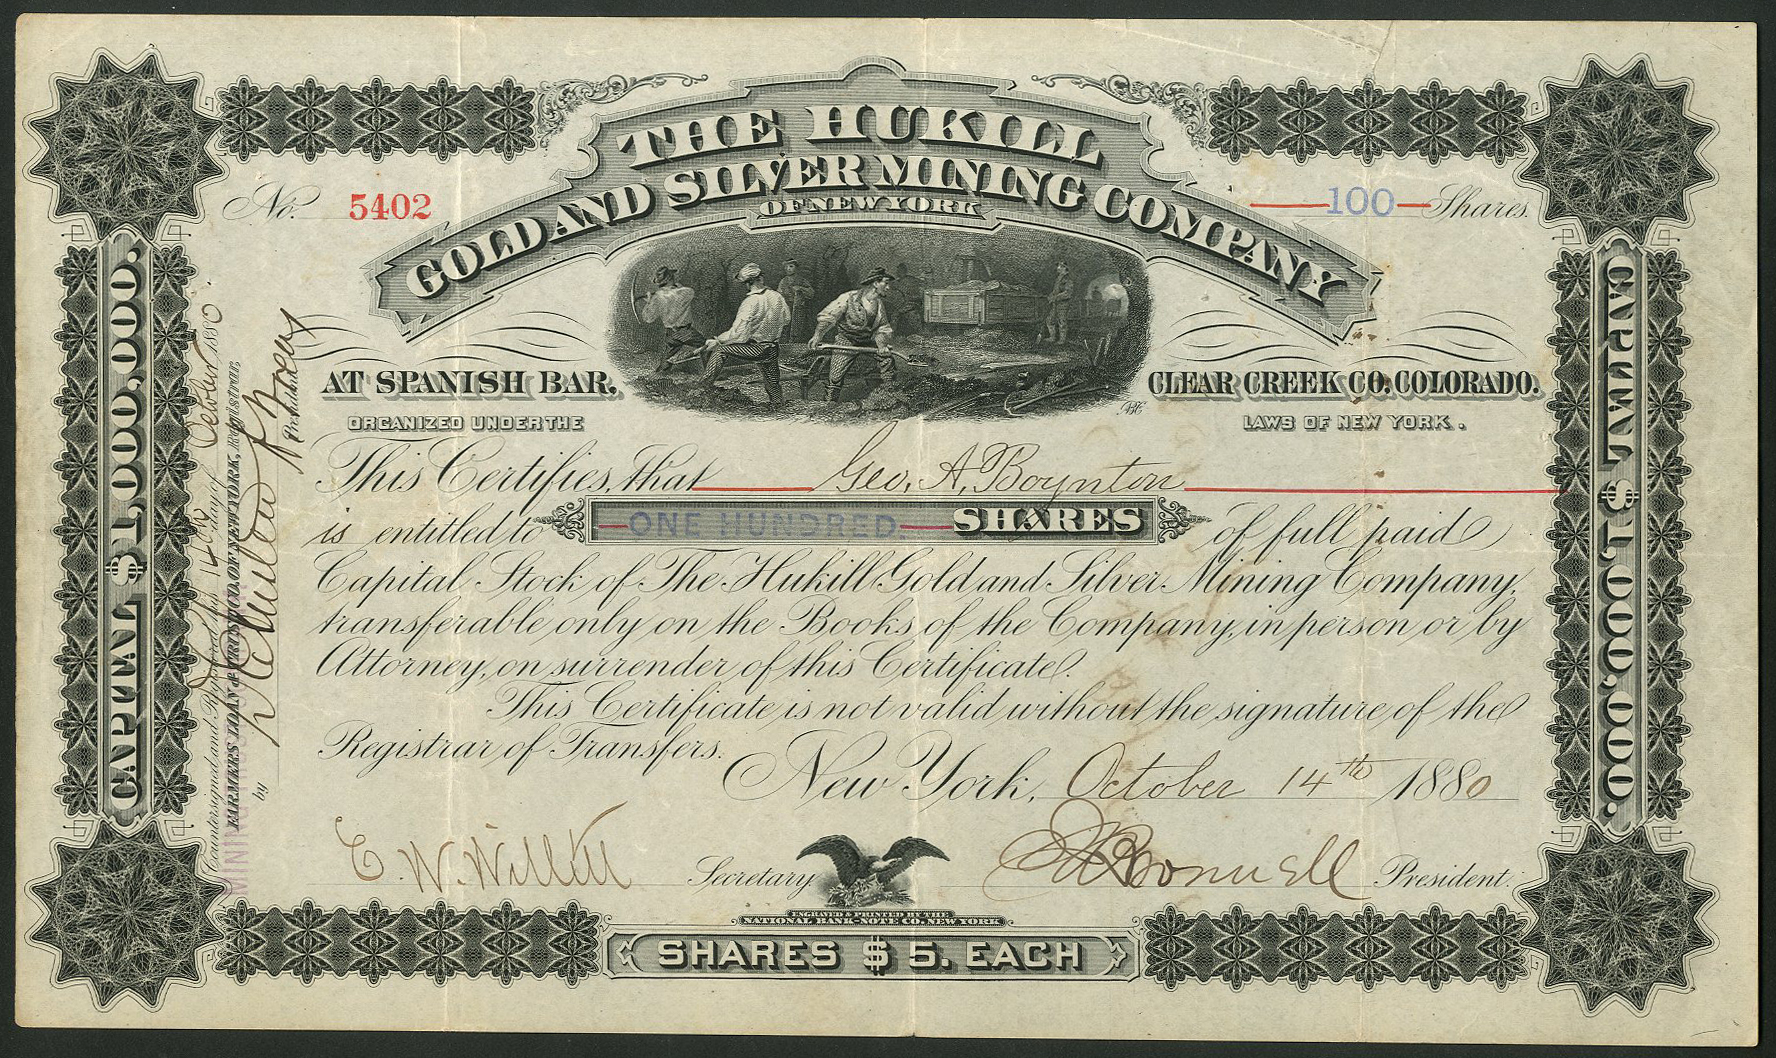 THE HUKILL
GOLD AND SILVER MINING COMPANY
OF NEW YORK
No. 5402
100 Shares.
AT SPANISH BAR.
CLEAR CREEK CO: COLORADO.
ORGANIZED UNDER THE
LAWS OF NEW YORK.
This Certifies, that Geo. A. Boynton
is entitled to ONE HUNDRED. SHARES of full paid
Capital Stock of The Hukill Gold and Silver Mining Company,
transferable only on the Books of the Company, in person or by
Attorney, on surrender of this Certificate.
This Certificate is not valid without the signature of the
Registrar of Transfers.
New York, October 14th 1880
E. W. Willett Secretary.
President.
ENGRAVED & PRINTED BY THE
NATIONAL BANK-NOTE CO. NEW YORK
SHARES $5. EACH
CAPITAL $1,000,000.
CAPITAL $1,000,000.
Countersigned and Registered this 14th day of October 1880
FARMERS LOAN & TRUST CO. OF NEW YORK, Registrar,
by
President
MINING